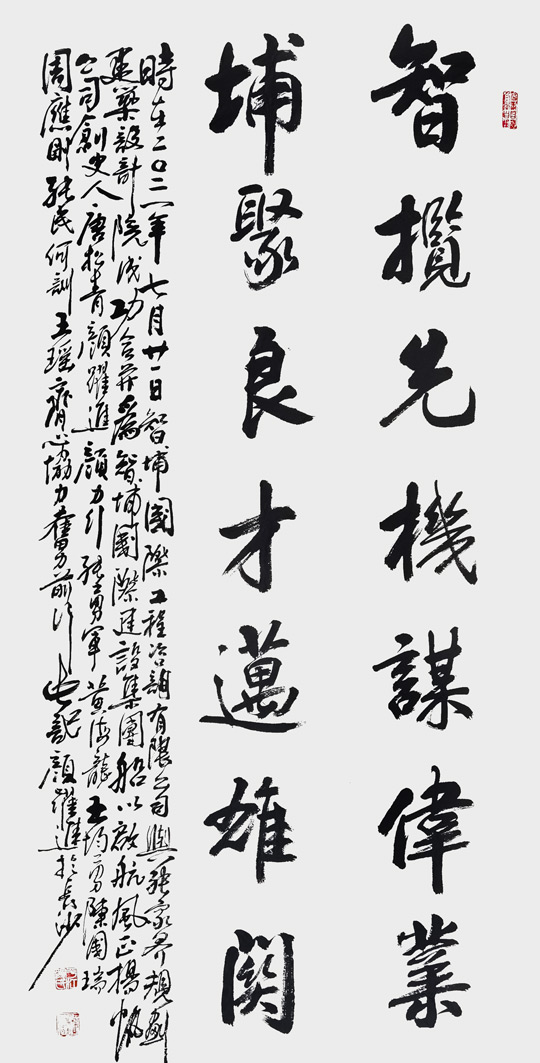 智攬先機謀偉業
埔聚良才邁雄關
時在二〇二一年七月廿一日智埔國際工程咨詢有限公司與張家界規劃
建築設計院成功合并爲智埔國際建設集團船以啟航風正揚帆
公司創史人唐松青顏躍進顏力行張勇軍黃海龍王均勇陳國瑞
周應張民何訓王瑤齊心協力奮勇前行記顏躍進於長沙